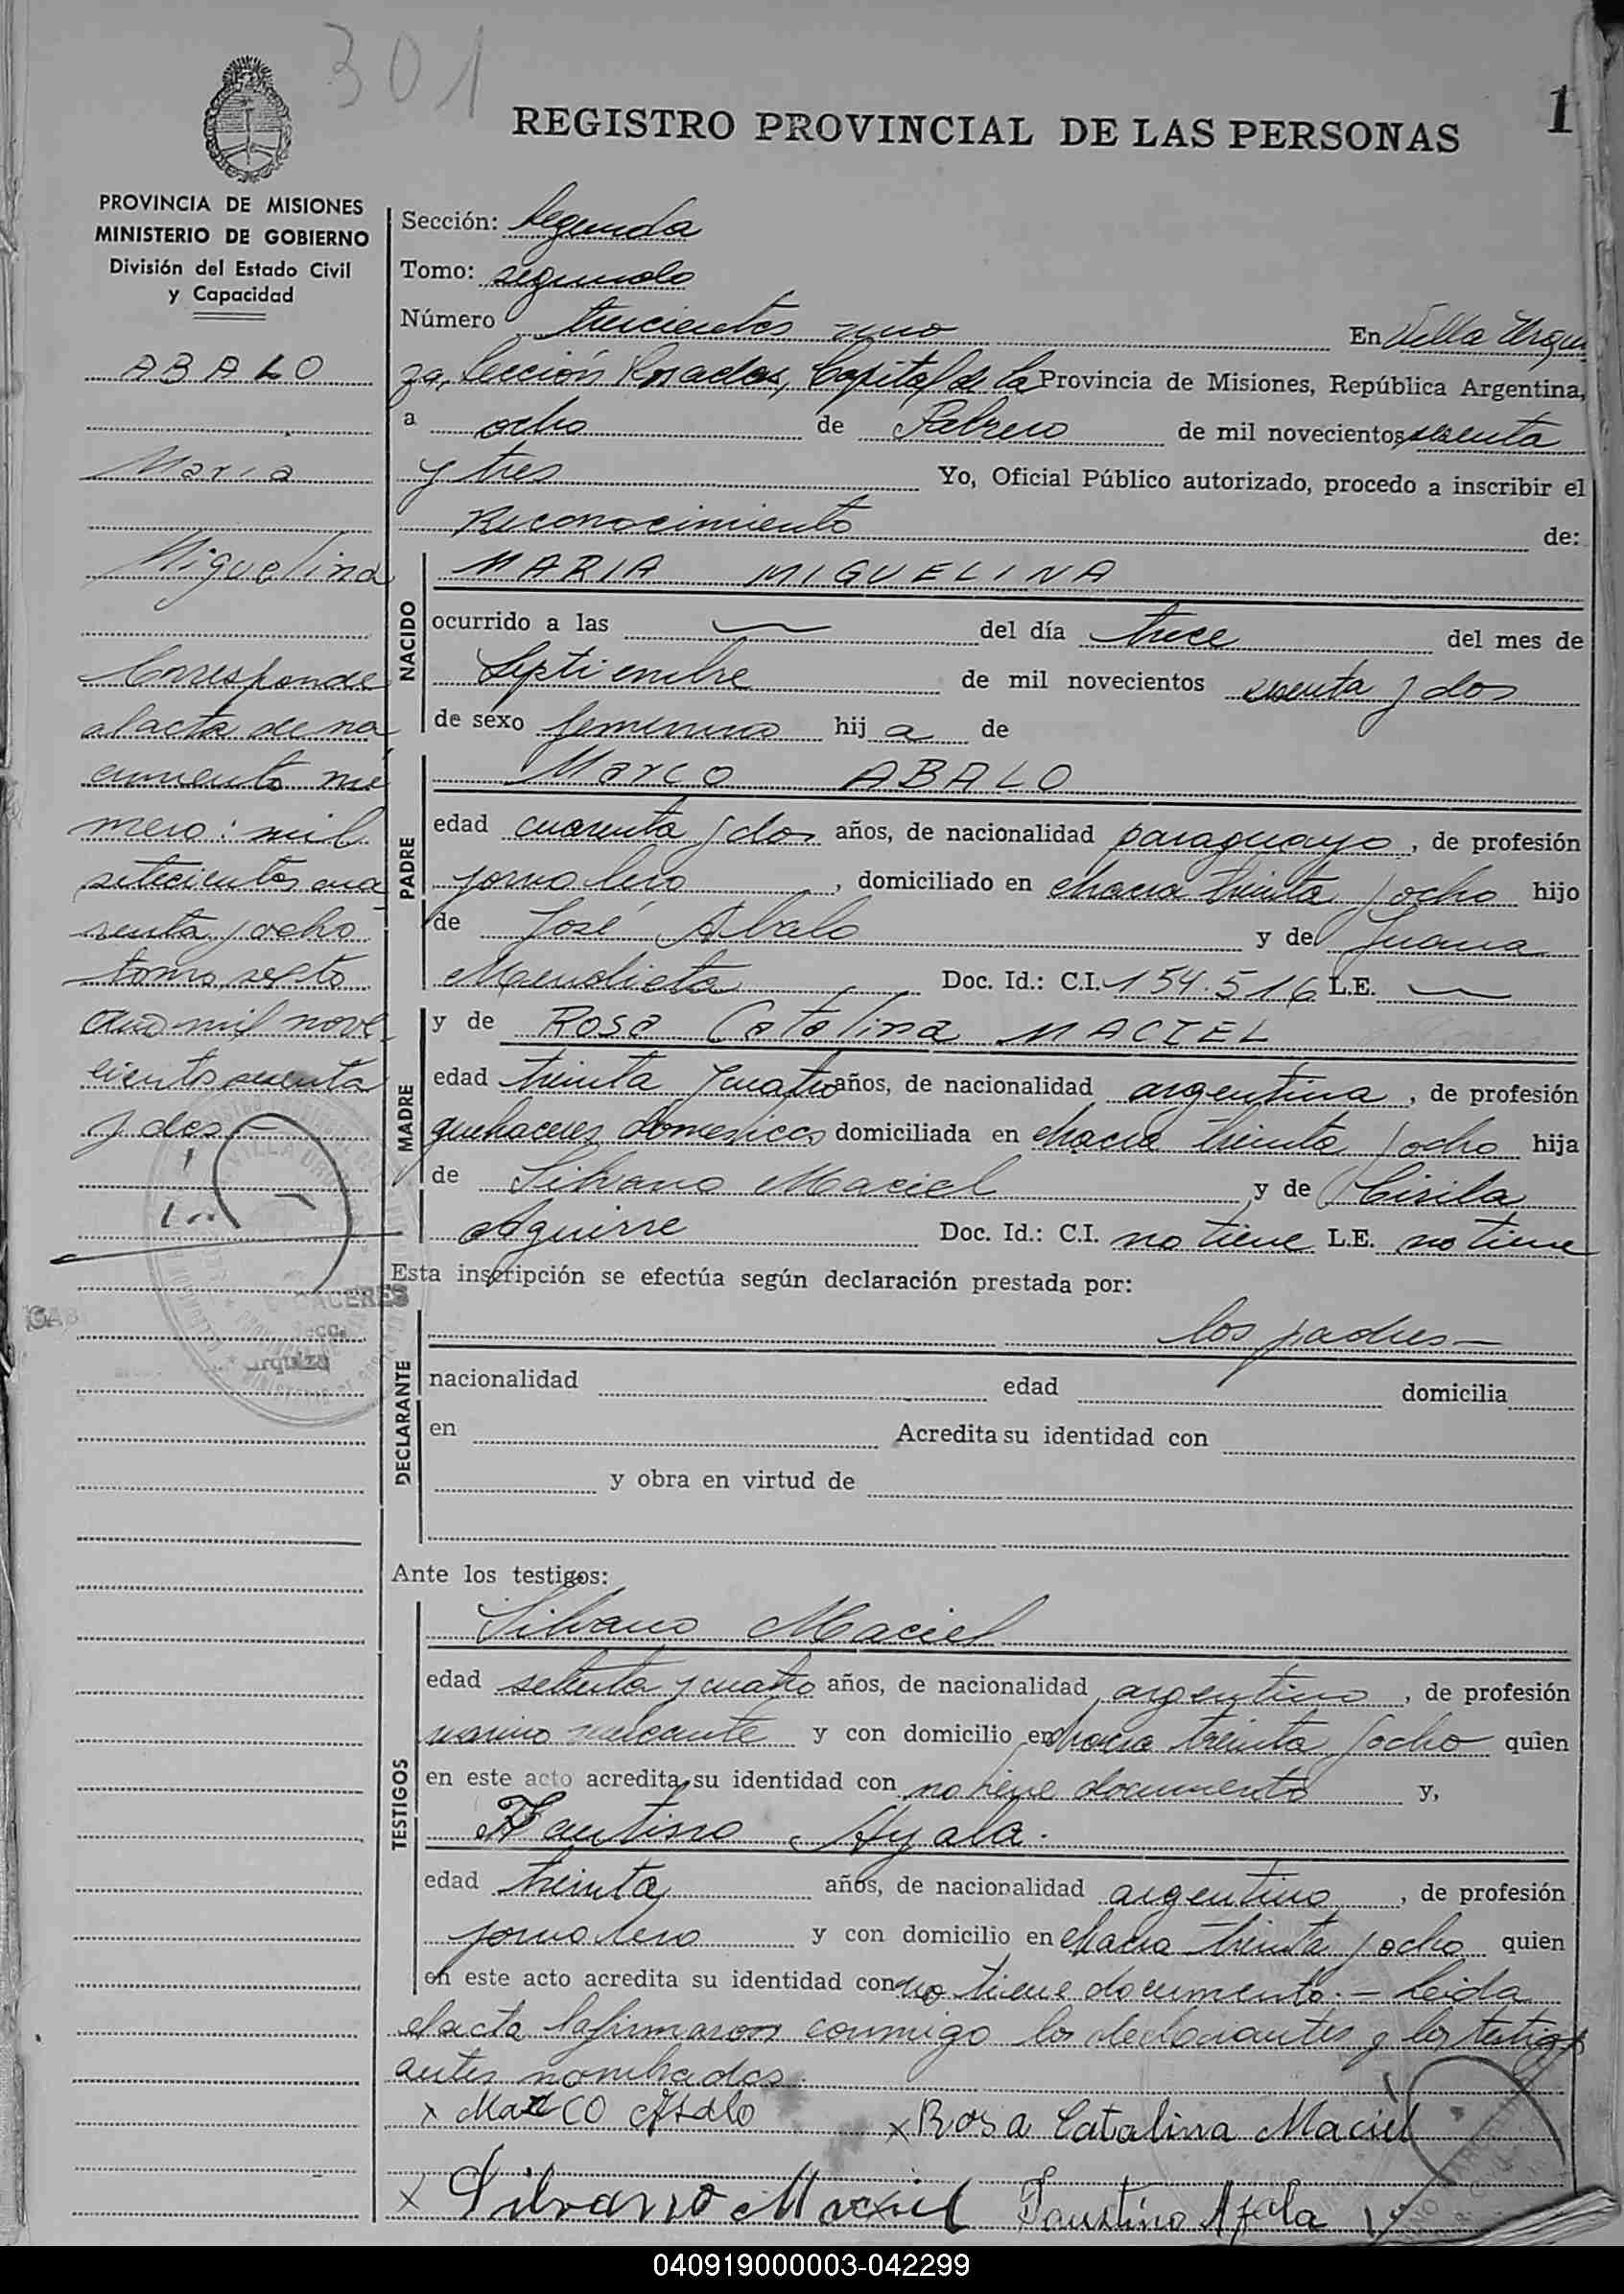 301
REGISTRO PROVINCIAL DE LAS PERSONAS
1
PROVINCIA DE MISIONES
MINISTERIO DE GOBIERNO
División del Estado Civil
y Capacidad
ABALO
Maria
Miguelina
Corresponde
al acta de na
cimiento nú
mero: mil
setecientos cua
renta y ocho
tomo sexto
año mil nove
cientos sesenta
y dos-
Sección: Segunda
Tomo: segundo
Número trescientos uno En Villa Urqui
za, Sección Posadas, Capital de la Provincia de Misiones, República Argentina,
a ocho de Febrero de mil novecientos sesenta
y tres Yo, Oficial Público autorizado, procedo a inscribir el
Reconocimiento de:
NACIDO
MARIA MIGUELINA
ocurrido a las del día trece del mes de
Septiembre de mil novecientos sesenta y dos
de sexo femenino hij a de
PADRE
Marco ABALO
edad cuarenta y dos años, de nacionalidad paraguayo, de profesión
jornalero, domiciliado en chacra treinta y ocho hijo
de José Abalo y de Juana
Mendieta Doc. Id.: C.I. 154.516 L.E.
MADRE
y de Rosa Catalina MACIEL
edad treinta y cuatro años, de nacionalidad argentina, de profesión
quehaceres domesticos domiciliada en chacra treinta y ocho hija
de Silvano Maciel y de Cirila
Aguirre Doc. Id.: C.I. no tiene L.E. no tiene
Esta inscripción se efectúa según declaración prestada por:
DECLARANTE
los padres-
nacionalidad edad domicilia
en Acredita su identidad con
y obra en virtud de
CACERES
Secc.
Urquiza
Ante los testigos:
TESTIGOS
Silvano Maciel
edad setenta y cuatro años, de nacionalidad argentino, de profesión
marino mercante y con domicilio en chacra treinta y ocho quien
en este acto acredita su identidad con no tiene documento y,
Faustino Ayala.
edad treinta años, de nacionalidad argentino, de profesión
jornalero y con domicilio en chacra treinta y ocho quien
en este acto acredita su identidad con no tiene documento.- Leida
el acta la firmaron conmigo los declarantes y los testigos
antes nombrados.
x Marco Abalo x Rosa Catalina Maciel
x Silvano Maciel Faustino Ayala
040919000003-042299